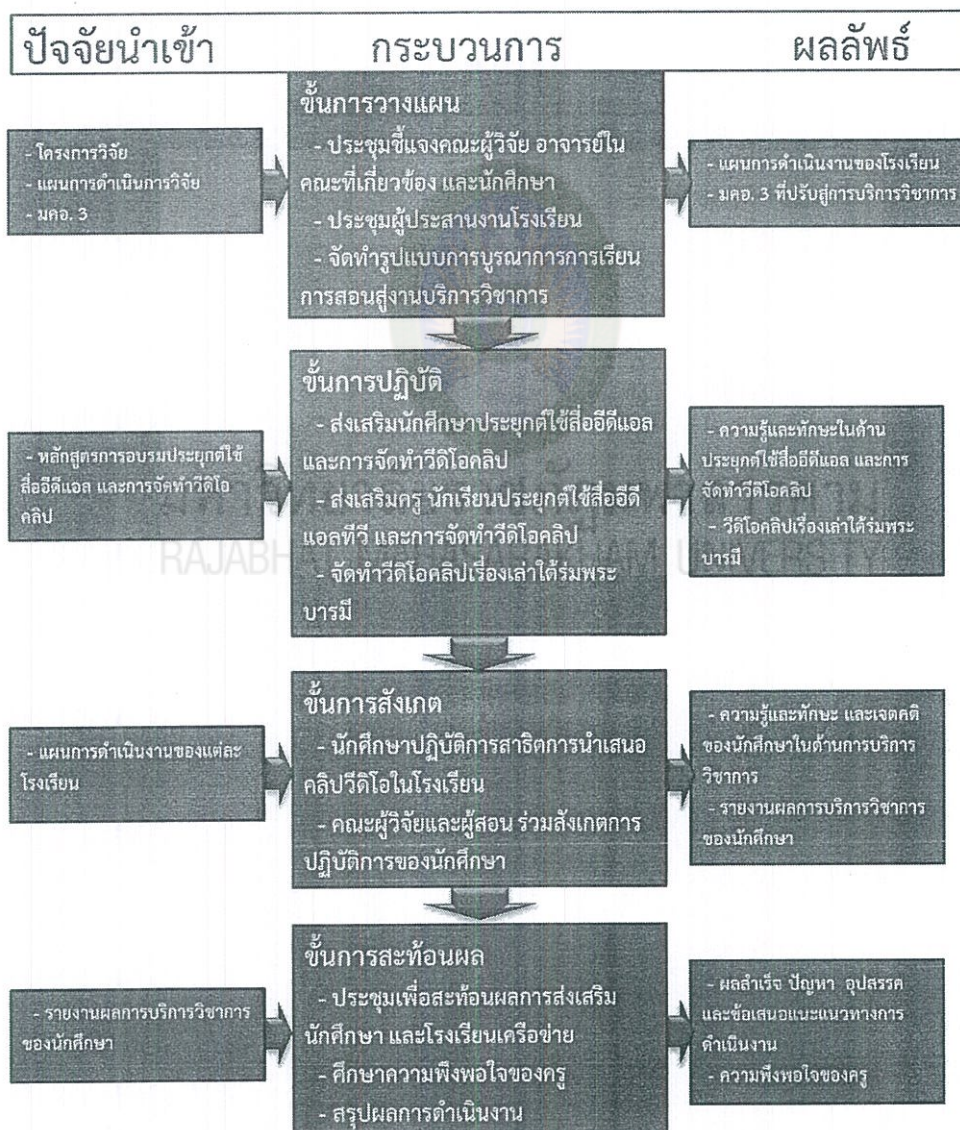 ปัจจัยนำเข้า
กระบวนการ
ผลลัพธ์
- โครงการวิจัย
- แผนการดำเนินการวิจัย
- มคอ. 3
ขั้นการวางแผน
- ประชุมชี้แจงคณะผู้วิจัย อาจารย์ใน
คณะที่เกี่ยวข้อง และนักศึกษา
- ประชุมผู้ประสานงานโรงเรียน
- จัดทำรูปแบบการบูรณาการการเรียน
การสอนสู่งานบริการวิชาการ
- แผนการดำเนินงานของโรงเรียน
- มคอ. 3 ที่ปรับสู่การบริการวิชาการ
- หลักสูตรการอบรมประยุกต์ใช้
สื่ออีดีแอล และการจัดทำวีดิโอ
คลิป
ขั้นการปฏิบัติ
- ส่งเสริมนักศึกษาประยุกต์ใช้สื่ออีดีแอล
และการจัดทำวีดิโอคลิป
- ส่งเสริมครู นักเรียนประยุกต์ใช้สื่ออีดี
แอลทีวี และการจัดทำวีดิโอคลิป
- จัดทำวีดิโอคลิปเรื่องเล่าใต้ร่มพระ
บารมี
- ความรู้และทักษะในด้าน
ประยุกต์ใช้สื่ออีดีแอล และการ
จัดทำวีดิโอคลิป
- วีดิโอคลิปเรื่องเล่าใต้ร่มพระ
บารมี
RAJABHAT MAHASARAKHAM UNIVERSITY
- แผนการดำเนินงานของแต่ละ
โรงเรียน
ขั้นการสังเกต
- นักศึกษาปฏิบัติการสาธิตการนำเสนอ
คลิปวีดิโอในโรงเรียน
- คณะผู้วิจัยและผู้สอน ร่วมสังเกตการ
ปฏิบัติการของนักศึกษา
- ความรู้และทักษะ และเจตคติ
ของนักศึกษาในด้านการบริการ
วิชาการ
- รายงานผลการบริการวิชาการ
ของนักศึกษา
- รายงานผลการบริการวิชาการ
ของนักศึกษา
ขั้นการสะท้อนผล
- ประชุมเพื่อสะท้อนผลการส่งเสริม
นักศึกษา และโรงเรียนเครือข่าย
- ศึกษาความพึงพอใจของครู
- สรุปผลการดำเนินงาน
- ผลสำเร็จ ปัญหา อุปสรรค
และข้อเสนอแนะแนวทางการ
ดำเนินงาน
- ความพึงพอใจของครู